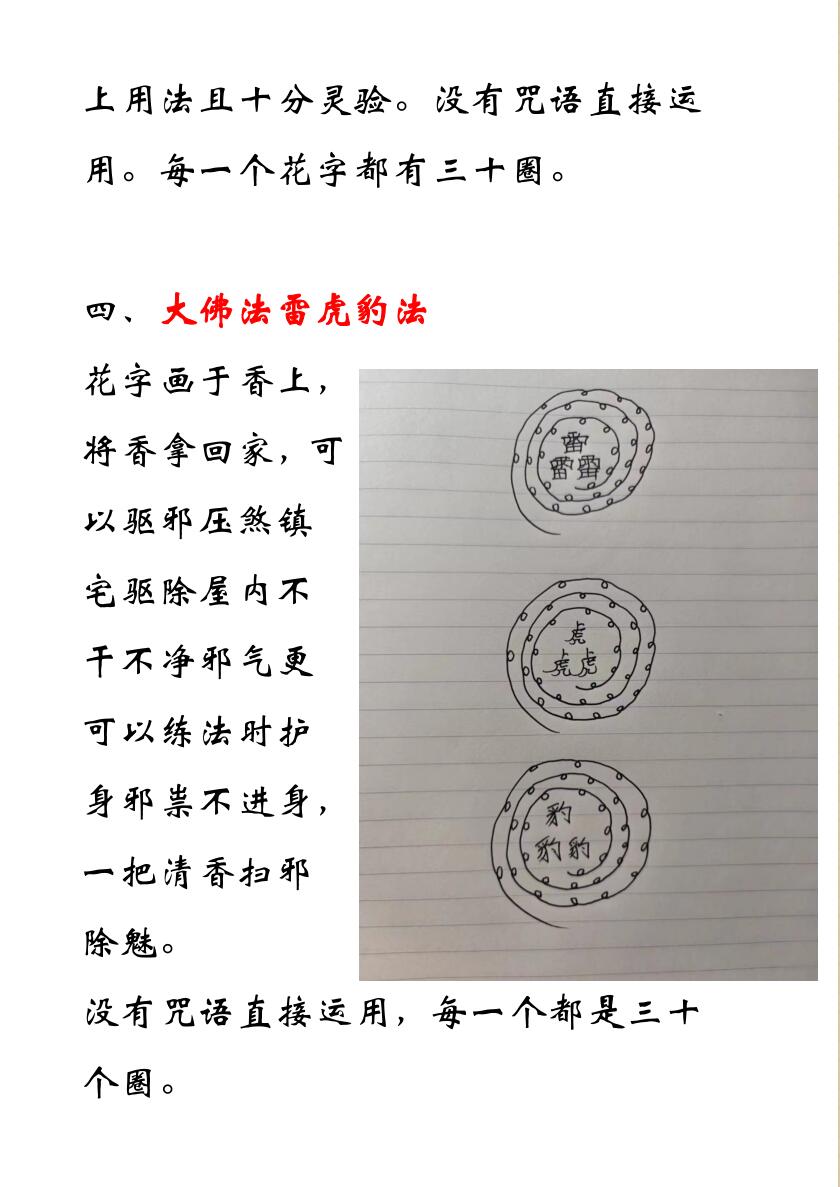 上用法且十分灵验。没有咒语直接运
用。每一个花字都有三十圈。
四、大佛法雷虎豹法
花字画于香上，
将香拿回家，可
以驱邪压煞镇
宅驱除屋内不
干不净邪气更
可以练法时护
身邪祟不进身，
一把清香扫邪
除魅。
雷
雷雷
虎
虎虎
豹
豹豹
没有咒语直接运用，每一个都是三十
个圈。